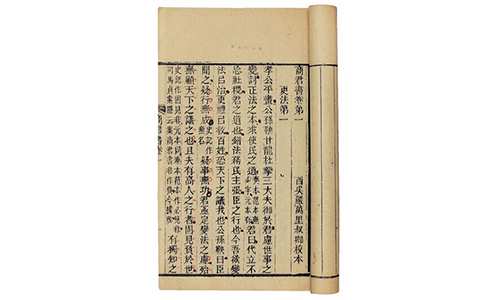 商君書卷第一
西吳嚴萬里叔卿校本
更法第一
孝公平畫公孫鞅甘龍杜摯三大夫御於君慮世事之
變討正法之本求使民之道君曰代立不
忘社稷君之道也錯法務民主張臣之行也今吾欲變
法以治更禮以教百姓恐天下之議我也公孫鞅曰臣
聞之疑行無成史記作無名疑事無功君亟定變法之慮殆
無顧天下之議之也且夫有高人之行者固見負於世
有獨知之
商君書卷一